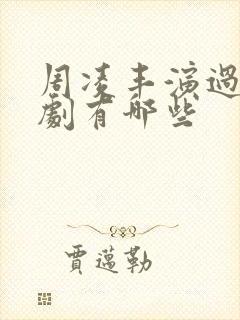 周凌丰演過
劇有哪些
賈邁勒